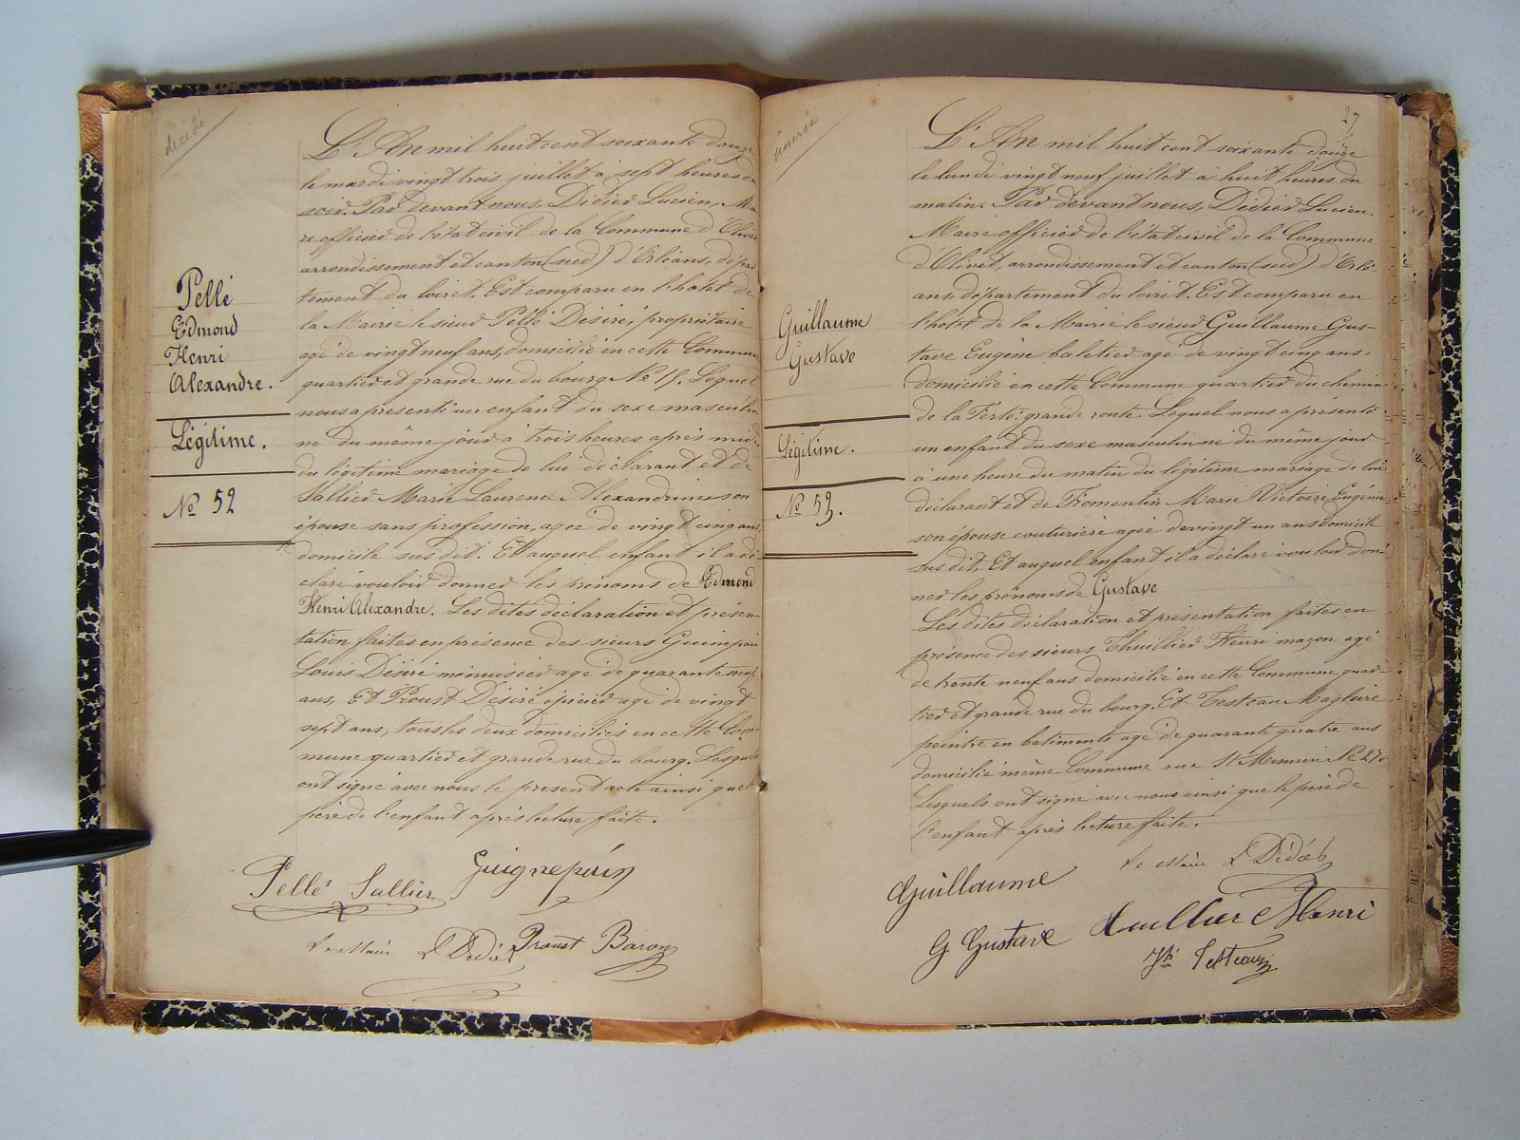 décédé
Pellé
Edmond
Henri
Alexandre.
Légitime.
No 52
L'An mil huit cent soixante douze
le mardi vingt trois juillet à sept heures du
soir. Par devant nous, Didier Lucien, Ma-
re officier de l'état civil de la Commune d'Olivet
arrondissement et canton (sud) d'Orléans, dépar
tement du loiret. Est comparu en l'hotel de
la Mairie le sieur Pellé Désiré, propriétaire
agé de vingt neuf ans, domicilié en cette Commune
quartier et grande rue du bourg No 15. Lequel
nous a présenté un enfant du sexe masculin
né du même jour à trois heures après midi
du légitime mariage de lui déclarant et de
Sallier Marie Laurence Alexandrine son
épouse sans profession, agée de vingt cinq ans
domicile sus dit. Et auquel enfant il a dé-
claré vouloir donner les prénoms de Edmond
Henri Alexandre. Les dites déclaration et présen-
tation faites en présence des sieurs Guignepain
Louis Désiré menuisier agé de quarante neuf
ans, Et Proust Désiré épicier agé de vingt
sept ans, tous les deux domiciliés en cette Com-
mune quartier et grande rue du bourg. Lesquels
ont signé avec nous le présent acte ainsi que le
père de l'enfant après lecture faite.
Pellé Sallier Guignepain
Le Maire L Didier Proust Baron
27
Guillaume
Gustave
Légitime.
No 53.
L'An mil huit cent soixante douze
le lundi vingt neuf juillet à huit heures du
matin. Par devant nous, Didier Lucien.
Maire officier de l'état civil de la Commune
d'Olivet, arrondissement et canton (sud) d'Orlé-
ans, département du loiret. Est comparu en
l'hotel de la Mairie le sieur Guillaume Gus-
tave Eugène batelier agé de vingt cinq ans.
domicilié en cette Commune quartier du chemin
de la Ferté: grande route. Lequel nous a présenté
un enfant du sexe masculin né du même jour
à une heure du matin du légitime mariage de lui
déclarant et de Fromentin Marie Victoire Eugénie
son épouse couturière agée de vingt un ans domicile
sus dit. Et auquel enfant il a déclaré vouloir don-
ner les prénoms de Gustave
Les dites déclaration et présentation faites en
présence des sieurs Thuillier Henri maçon agé
de trente neuf ans domicilié en cette Commune quar-
tier et grande rue du bourg. Et Testeau Magloire
peintre en batiments agé de quarante quatre ans
domicilié même Commune rue St Mesmin No 27.
Lesquels ont signé avec nous ainsi que le père de
l'enfant après lecture faite.
Le Maire L Didier
Guillaume
G Gustave Thuillier Henri
Testeau